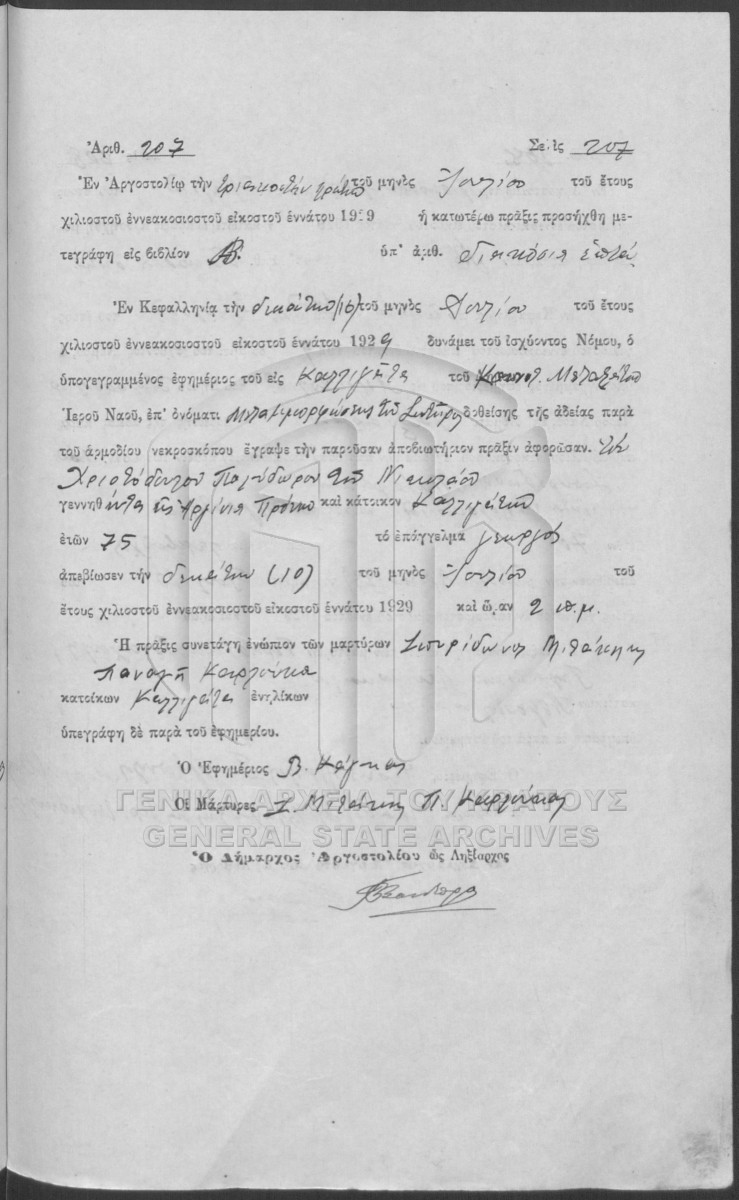 Ἀριθ. 207 Σελὶς 207
Ἐν Ἀργοστολίῳ τὴν τριακοστὴν πρώτην τοῦ μηνὸς Ἰουλίου τοῦ ἔτους
χιλιοστοῦ ἐννεακοσιοστοῦ εἰκοστοῦ ἐννάτου 1929 ἡ κατωτέρω πρᾶξις προσήχθη με-
τεγράφη εἰς βιβλίον Β. ὑπ' ἀριθ. διακόσια ἑπτά
Ἐν Κεφαλληνίᾳ τὴν δεκάτην (10) τοῦ μηνὸς Ἰουλίου τοῦ ἔτους
χιλιοστοῦ ἐννεακοσιοστοῦ εἰκοστοῦ ἐννάτου 1929 δυνάμει τοῦ ἰσχύοντος Νόμου, ὁ
ὑπογεγραμμένος ἐφημέριος τοῦ εἰς Καλλιγᾶτα τοῦ Κοινοτ. Μεταξάτων
Ἱεροῦ Ναοῦ, ἐπ' ὀνόματι Μεταμορφώσεως τοῦ Σωτῆρος δοθείσης τῆς ἀδείας παρὰ
τοῦ ἁρμοδίου νεκροσκόπου ἔγραψε τὴν παροῦσαν ἀποβιωτήριον πρᾶξιν ἀφορῶσαν. τὸν
Χριστόδουλον Πολύδωρον τοῦ Νικολάου
γεννηθέντα εἰς Ἀργίνια Πρόννων καὶ κάτοικον Καλλιγάτων
ἐτῶν 75 τὸ ἐπάγγελμα γεωργός
ἀπεβίωσεν τὴν δεκάτην (10) τοῦ μηνὸς Ἰουλίου τοῦ
ἔτους χιλιοστοῦ ἐννεακοσιοστοῦ εἰκοστοῦ ἐννάτου 1929 καὶ ὥραν 2 π.μ.
Ἡ πρᾶξις συνετάγη ἐνώπιον τῶν μαρτύρων Σπυρίδωνος Μιτάκης
Παναγῆ Καρλούκα
κατοίκων Καλλιγάτα ἐνηλίκων
ὑπεγράφη δὲ παρὰ τοῦ ἐφημερίου.
Ὁ Ἐφημέριος Β.
ΓΕΝΙΚΑ ΑΡΧΕΙΑ ΤΟΥ ΚΡΑΤΟΥΣ
Οἱ Μάρτυρες Σ. Μιτάκης Π. Καρλούκας
GENERAL STATE ARCHIVES
Ὁ Δήμαρχος Ἀργοστολίου ὡς Ληξίαρχος